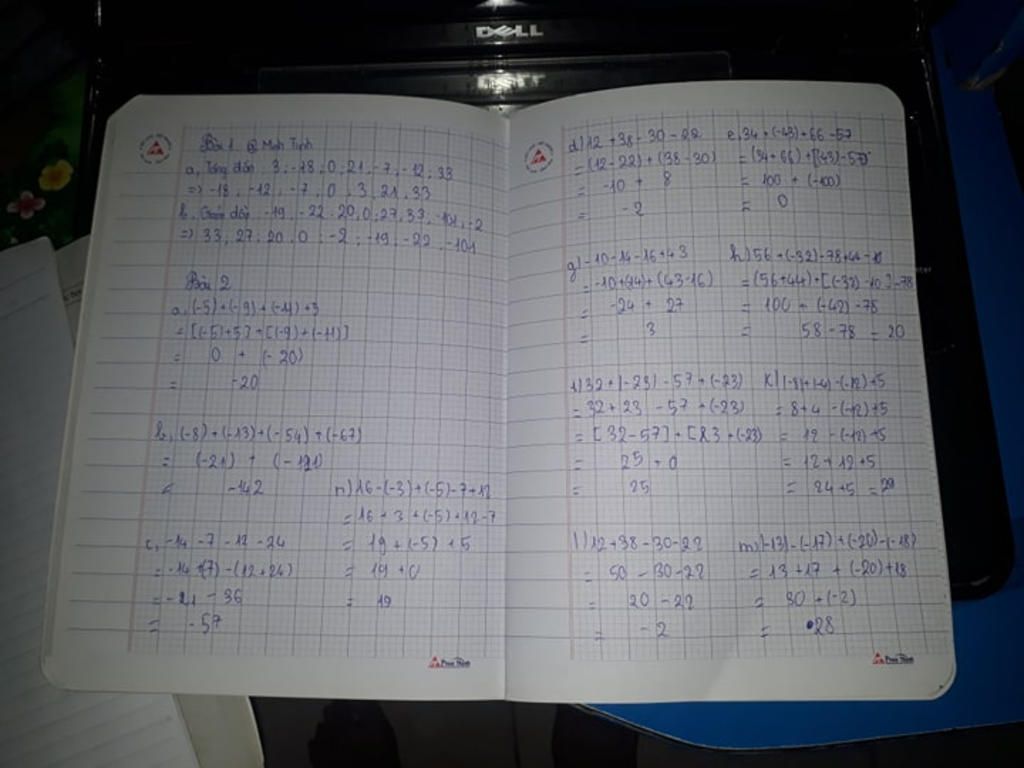 DELL
Bài 1
a, Tăng dần 3; -18; 0; 21; -7; -12; 33
=> -18, -12, -7, 0, 3, 21, 33
b, Giảm dần -19, -22, 20, 0, 27, 33, -101, -2
=> 33, 27, 20, 0, -2, -19, -22, -101
Bài 2
a, (-5)+(-9)+(-11)+5
=[(-5)+5]+[(-9)+(-11)]
= 0 + (-20)
= -20
b, (-8)+(-13)+(-54)+(-67)
= (-21) + (-121)
= -142
c, -14-7-12-24
= -14+(7)-(12+24)
= -21 - 36
= -57
n) 16-(-3)+(-5)-7+12
= 16+3+(-5)+12-7
= 19+(-5)+5
= 19+0
= 19
d) 12+38-30-22
= (12-22)+(38-30)
= -10 + 8
= -2
e, 34+(-43)+66-57
= (34+66)+[(43)-57]
= 100 + (-100)
= 0
g) -10-14-16+43
= -10+(14)+(43-16)
= -24 + 27
= 3
h) 56+(-32)-78+44-10
= (56+44)+[(-32)-10]-78
= 100 + (-42)-78
= 58-78 = 20
i) 32+|-23|-57+(-23)
= 32+23-57+(-23)
= [32-57]+[23+(-23)
= 25+0
= 25
k) |-8|+|-4|-(-12)+5
= 8+4-(-12)+5
= 12-(-12)+5
= 12+12+5
= 24+5 = 29
l) 12+38-30-22
= 50-30-22
= 20-22
= -2
m, |-13|-(-17)+(-20)-(-18)
= 13+17+(-20)+18
= 30+(-2)
= 28